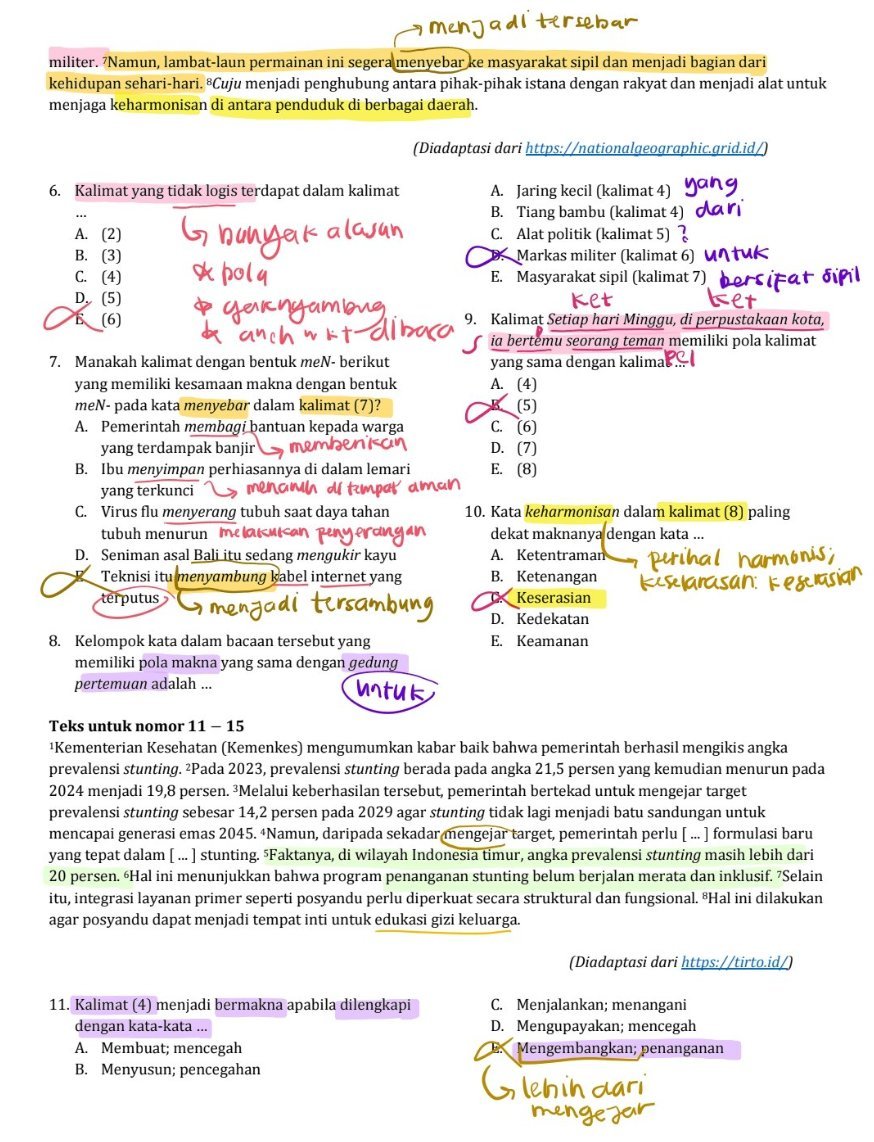 menjadi tersebar
militer. ⁷Namun, lambat-laun permainan ini segera menyebar ke masyarakat sipil dan menjadi bagian dari
kehidupan sehari-hari. ⁸Cuju menjadi penghubung antara pihak-pihak istana dengan rakyat dan menjadi alat untuk
menjaga keharmonisan di antara penduduk di berbagai daerah.
(Diadaptasi dari https://nationalgeographic.grid.id/)
6. Kalimat yang tidak logis terdapat dalam kalimat
...
A. (2)
B. (3)
C. (4)
D. (5)
E. (6)
banyak alasan
pola
gaknyambung
dibaca
7. Manakah kalimat dengan bentuk meN- berikut
yang memiliki kesamaan makna dengan bentuk
meN- pada kata menyebar dalam kalimat (7)?
A. Pemerintah membagi bantuan kepada warga
yang terdampak banjir memberikan
B. Ibu menyimpan perhiasannya di dalam lemari
yang terkunci menaruh di tempat aman
C. Virus flu menyerang tubuh saat daya tahan
tubuh menurun melakukan penyerangan
D. Seniman asal Bali itu sedang mengukir kayu
E. Teknisi itu menyambung kabel internet yang
terputus menjadi tersambung
8. Kelompok kata dalam bacaan tersebut yang
memiliki pola makna yang sama dengan gedung
pertemuan adalah ...
untuk
A. Jaring kecil (kalimat 4) yang
B. Tiang bambu (kalimat 4) dari
C. Alat politik (kalimat 5) ?
D. Markas militer (kalimat 6) untuk
E. Masyarakat sipil (kalimat 7) bersifat sipil
ket ket
9. Kalimat Setiap hari Minggu, di perpustakaan kota,
S ia bertemu seorang teman memiliki pola kalimat
P
yang sama dengan kalimat ...
Pel
A. (4)
B. (5)
C. (6)
D. (7)
E. (8)
10. Kata keharmonisan dalam kalimat (8) paling
dekat maknanya dengan kata ...
A. Ketentraman
B. Ketenangan
C. Keserasian
D. Kedekatan
E. Keamanan
perihal harmonis;
keselarasan: keserasian
Teks untuk nomor 11 – 15
¹Kementerian Kesehatan (Kemenkes) mengumumkan kabar baik bahwa pemerintah berhasil mengikis angka
prevalensi stunting. ²Pada 2023, prevalensi stunting berada pada angka 21,5 persen yang kemudian menurun pada
2024 menjadi 19,8 persen. ³Melalui keberhasilan tersebut, pemerintah bertekad untuk mengejar target
prevalensi stunting sebesar 14,2 persen pada 2029 agar stunting tidak lagi menjadi batu sandungan untuk
mencapai generasi emas 2045. ⁴Namun, daripada sekadar mengejar target, pemerintah perlu [ ... ] formulasi baru
yang tepat dalam [ ... ] stunting. ⁵Faktanya, di wilayah Indonesia timur, angka prevalensi stunting masih lebih dari
20 persen. ⁶Hal ini menunjukkan bahwa program penanganan stunting belum berjalan merata dan inklusif. ⁷Selain
itu, integrasi layanan primer seperti posyandu perlu diperkuat secara struktural dan fungsional. ⁸Hal ini dilakukan
agar posyandu dapat menjadi tempat inti untuk edukasi gizi keluarga.
(Diadaptasi dari https://tirto.id/)
11. Kalimat (4) menjadi bermakna apabila dilengkapi
dengan kata-kata ...
A. Membuat; mencegah
B. Menyusun; pencegahan
C. Menjalankan; menangani
D. Mengupayakan; mencegah
E. Mengembangkan; penanganan
lebih dari
mengejar